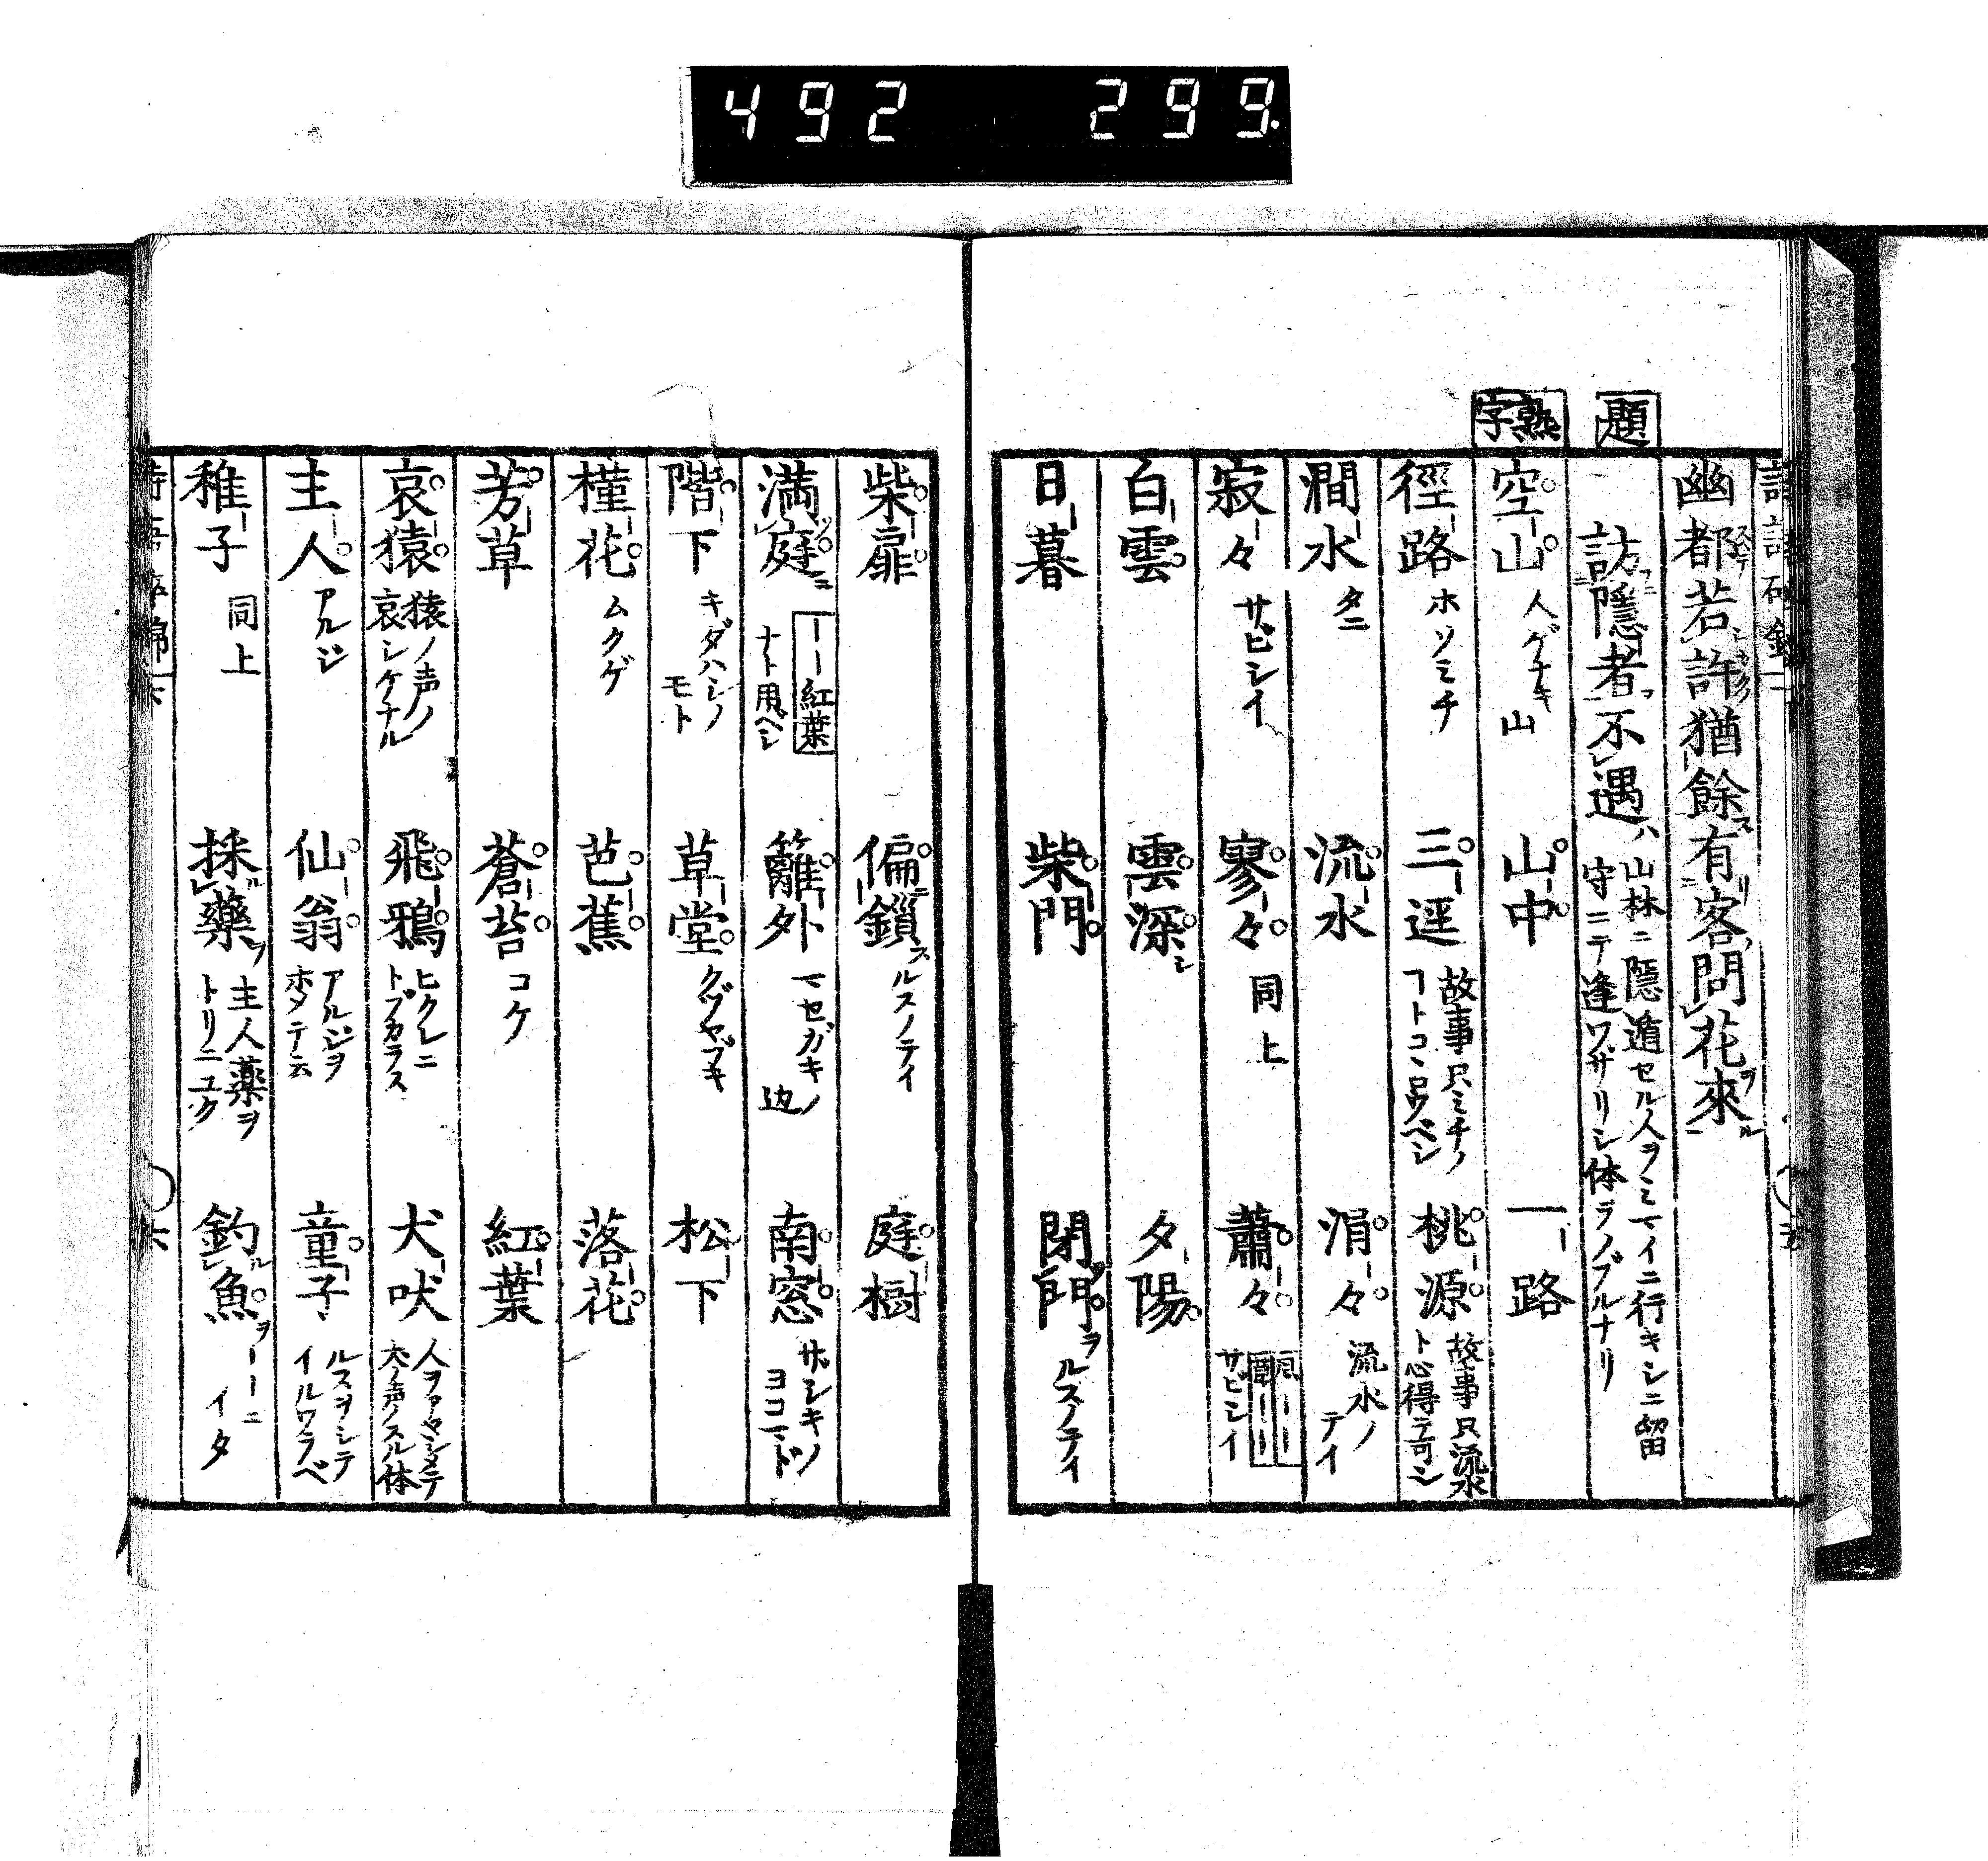 492 299.
幽都若許猶餘有客問花來
題
訪隱者不遇ハ
山林ニ隱遁セル人ヲミマイニ行キシニ留
守ニテ逢ワザリシ体ラノブルナリ
熟字
空山 人ゲナキ山 山中 一路
徑路 ホソミチ 三逕 故事只ミチノコトコ心ウベシ 桃源 故事只流水ト心得テ可シ
澗水 タニ 流水 涓々 流水ノテイ
寂々 サビシイ 寥々 同上 蕭々 サビシイ
白雲 雲深シ 夕陽
日暮 柴門 閉門ヲ ルスノテイ
柴扉 偏ニ鎖ス ルスノテイ 庭樹
満庭ニ 一一紅葉 ナト用ベシ 籬外 マセガキノ辺 南窓 サシキノヨコマド
階下 キダハシノモト 草堂 クヅヤブキ 松下
槿花 ムクゲ 芭蕉 落花
芳草 蒼苔 コケ 紅葉
哀猿 猿ノ声ノ哀シケナル 飛鴉 ヒクレニトブカラス 犬吠 人ヲアヤシメテ犬ノ声ノスル体
主人 アルジ 仙翁 アルジヲホメテ云 童子 ルスヲシテイルワラベ
稚子 同上 採藥ヲ 主人薬ヲトリニユク 釣魚ヲ 一一ニイタ